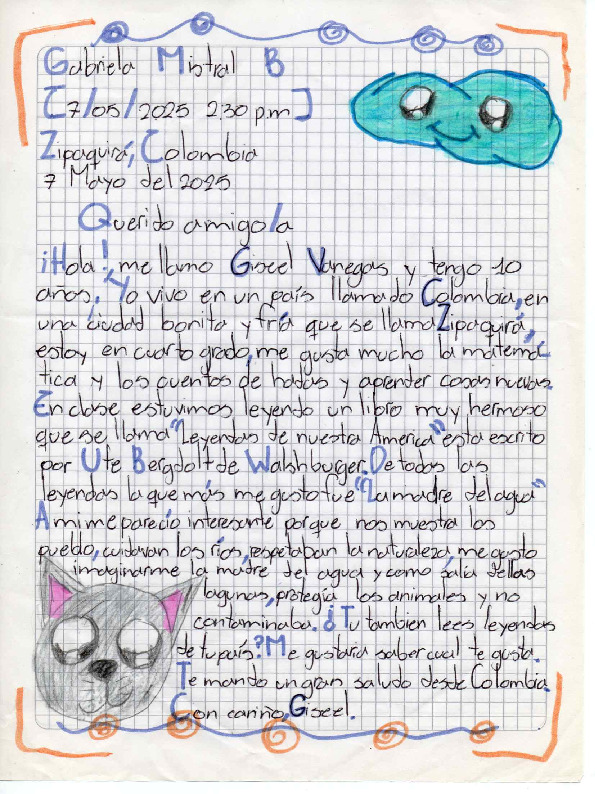 Gabriela Mistral B
[7/05/2025 2:30 p.m]
Zipaquirá, Colombia
7 Mayo del 2025
Querido amigo/a
¡Hola!, me llamo Giseel Vanegas y tengo 10
años, Yo vivo en un país llamado Colombia, en
una ciudad bonita y fría que se llama Zipaquirá,
estoy en cuarto grado, me gusta mucho la matemá
tica y los cuentos de hadas y aprender cosas nuevas.
En clase estuvimos leyendo un libro muy hermoso
que se llama "Leyendas de nuestra America" esta escrito
por Ute Bergdolt de Walshburger. De todas las
leyendas la que más me gusto fue "La madre del agua"
A mi me parecío interesante porque nos muestra los
pueblo, cuidavan los ríos, respetaban la naturaleza, me gusto
imaginarme la madre del agua y como salia dellas
lagunas, protegia los animales y no
contaminaba. ¿Tu tambien lees leyendas
de tu país? Me gustaria saber cual te gusta.
Te mando un gran saludo desde Colombia.
Con cariño, Giseel.